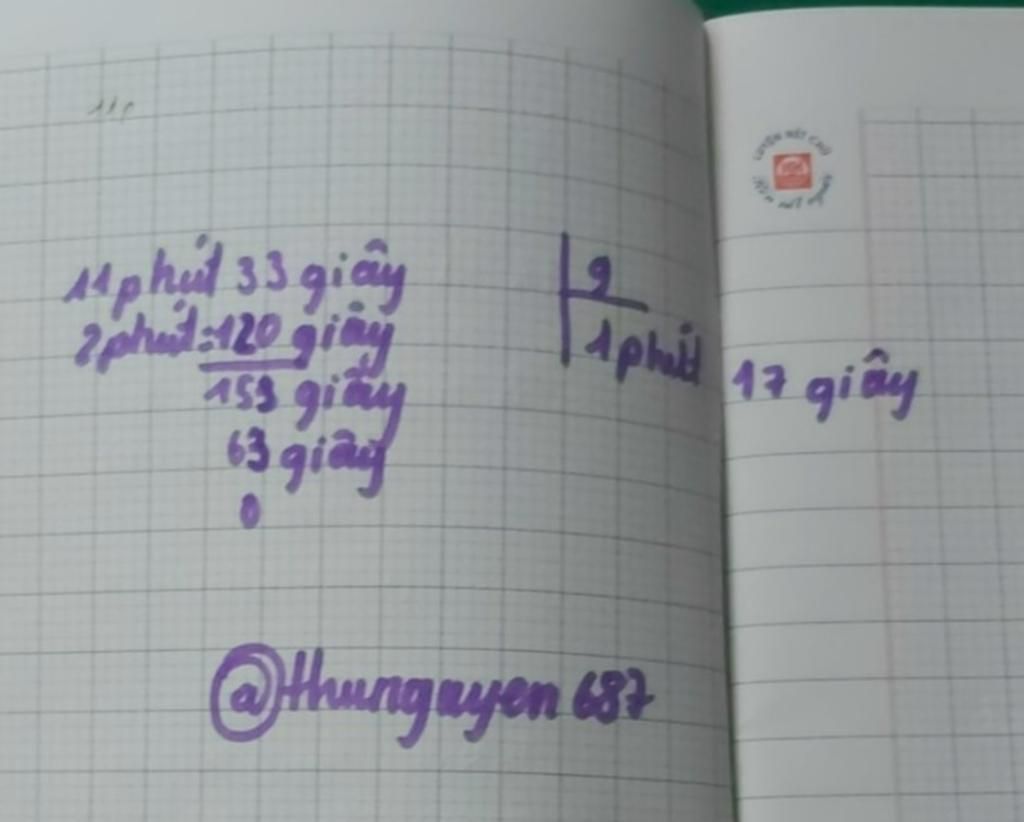 11 phút 33 giây 9
2 phút = 120 giây 1 phút 17 giây
153 giây
63 giây
0
@thunguyen 687
LUYỆN NÉT CHỮ